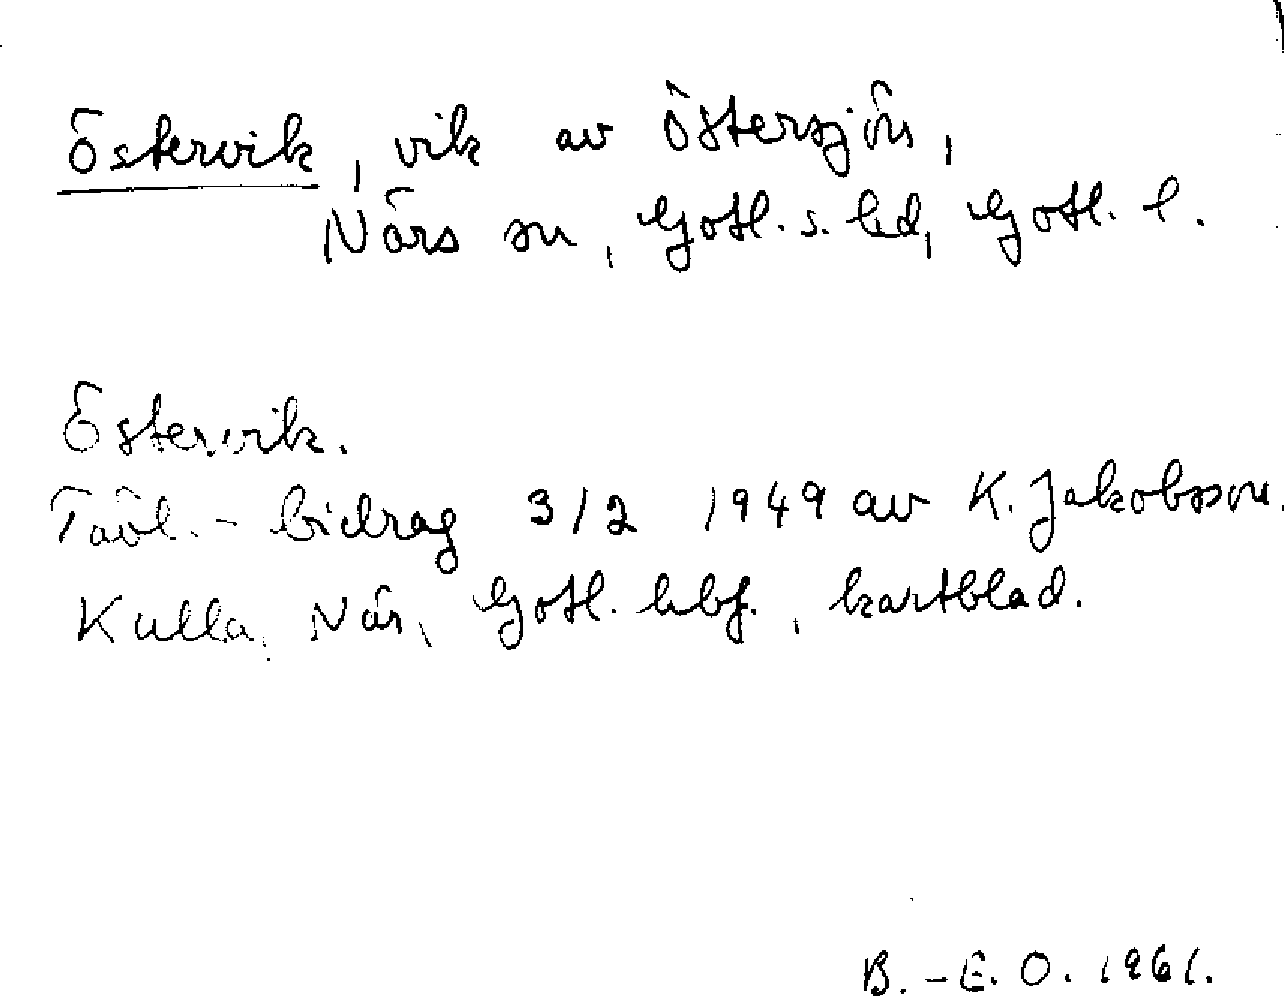 Östervik, vik av Östersjön,
Närs sn, Gotl. s. hd, Gotl. l.
Östervik.
Tävl.-bidrag 3/2 1949 av K. Jakobsson.
Kulla, När, Gotl. hbf., kartblad.
B.-E. O. 1961.